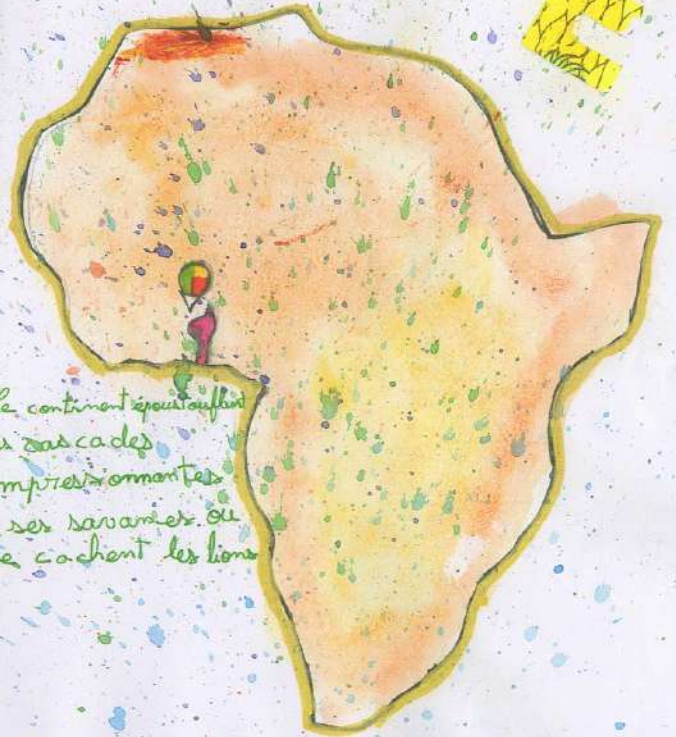 C
Le continent époustouflant
cascades
impressionnantes
ses savanes ou
se cachent les lions